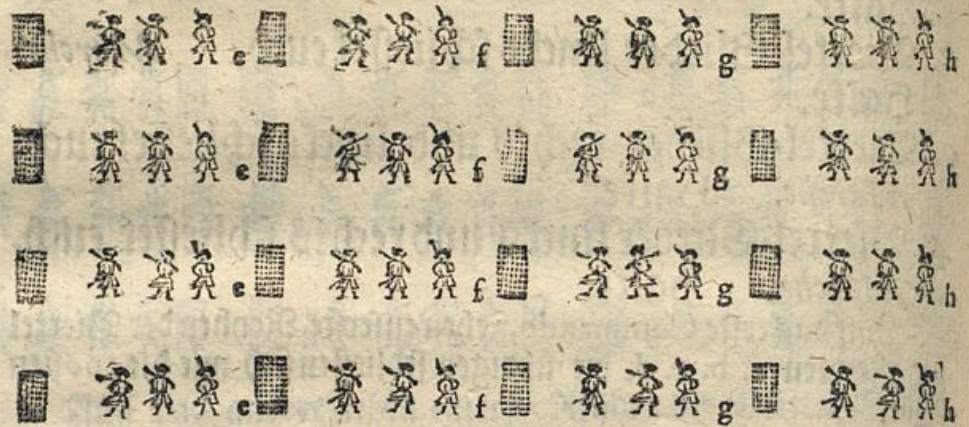 e f g h
e f g h
e f g h
e f g h